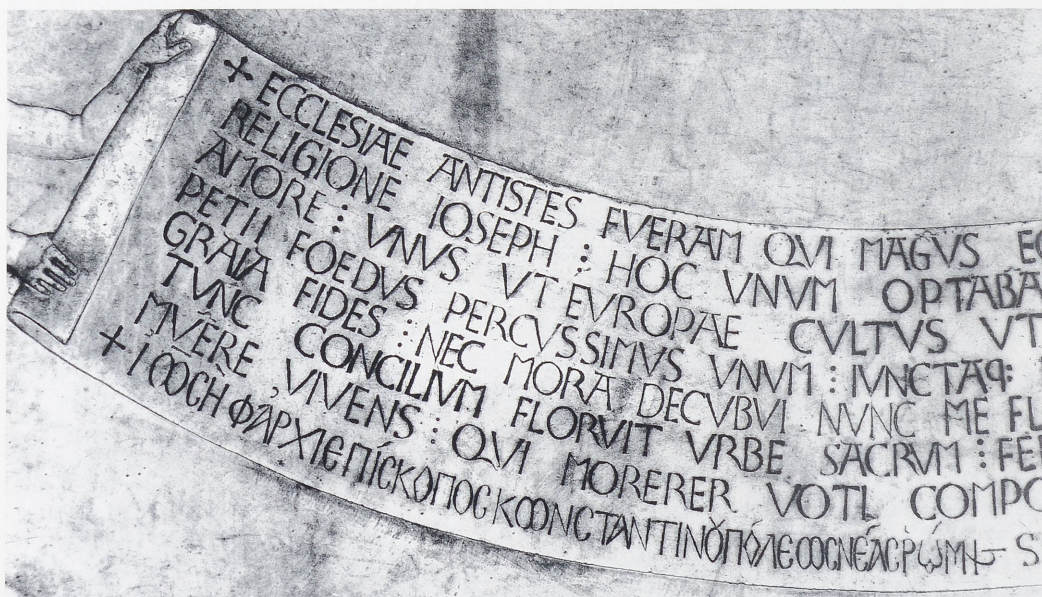 + ECCLESIAE ANTISTES FVERAM QVI MAGN̄VS EO
RELIGIONE IOSEPH ⁝ HOC VNVM OPTABA
AMORE ⁝ VNVS VT EVROPAE CVLTVS VT
PETII FOEDVS PERCVSSIMVS VNVM ⁝ IVNCTAQ:
GRAIA FIDES ⁝ NEC MORA DECVBVI NVNC ME FL
TVNC CONCILIVM FLORVIT VRBE SACRVM ⁝ FE
MVÊRE, VIVENS ⁝ QVI MORERER VOTI COMPO
+ ΙѠСῊΦ ἈΡΧΙΕΠΊСΚΟΠΟС ΚѠΝСΤΑΝΤΙΝΟΥΠΌΛΕѠС ΝΈΑС ΡѠ́ΜΗС S